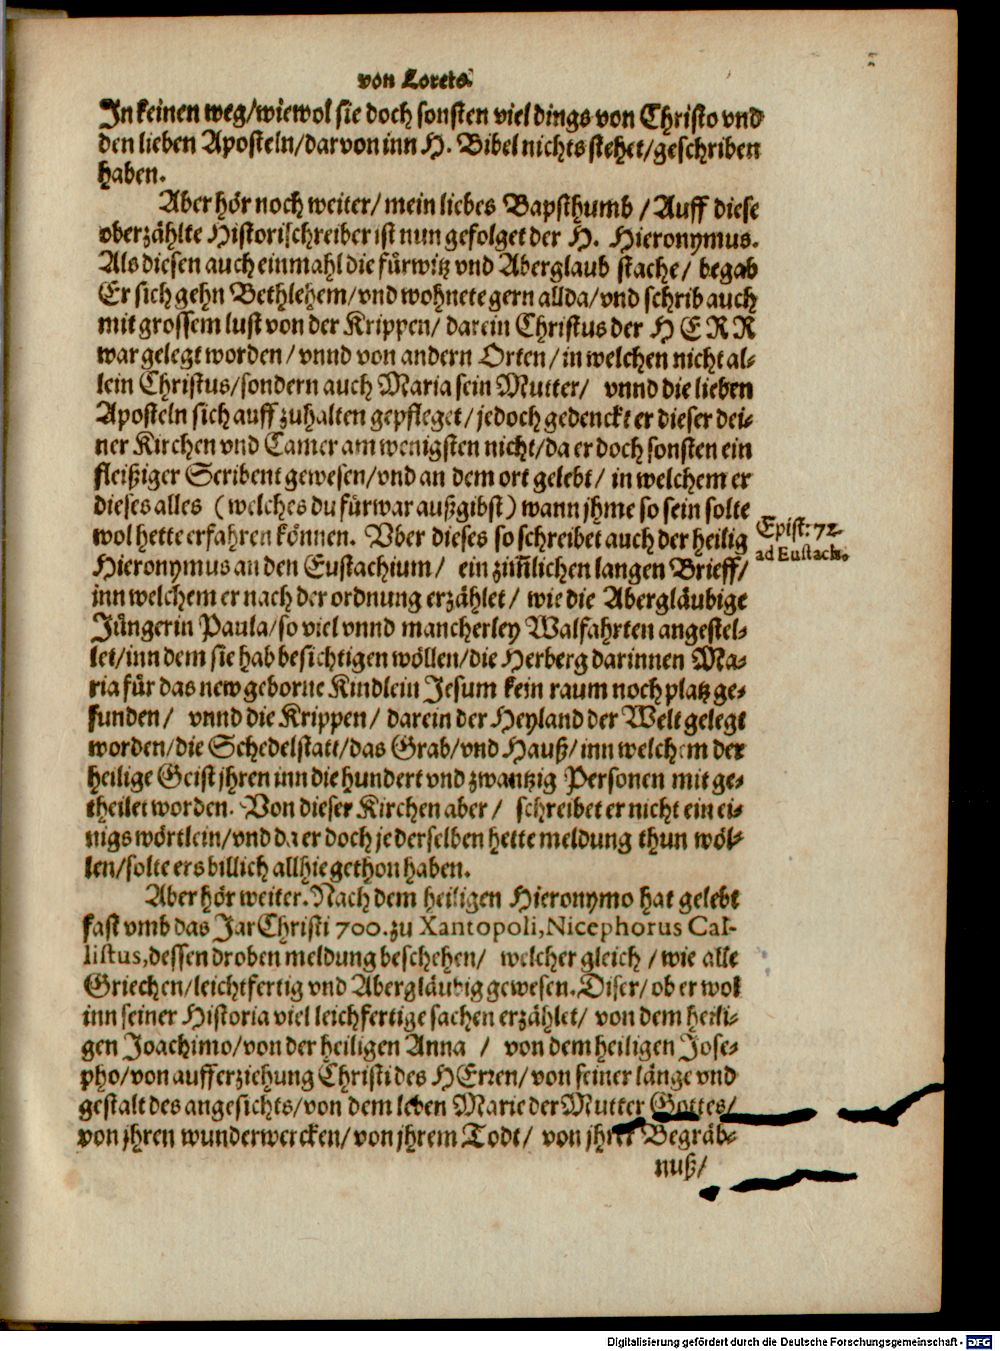 von Loreto.
In keinen weg/wiewol sie doch sonsten viel dings von Christo vnd
den lieben Aposteln/darvon inn H. Bibel nichts stehet/geschriben
haben.
Aber hör noch weiter/mein liebes Bapsthumb/Auff diese
oberzählte Historischreiber ist nun gefolget der H. Hieronymus.
Als diesen auch einmahl die fürwitz vnd Aberglaub stache/ begab
Er sich gehn Bethlehem/vnd wohnete gern allda/vnd schrib auch
mit grossem lust von der Krippen/ darein Christus der HERR
war gelegt worden/vnnd von andern Orten/in welchen nicht al-
lein Christus/sondern auch Maria sein Mutter/ vnnd die lieben
Aposteln sich auff zuhalten gepfleget/jedoch gedenckt er dieser dei-
ner Kirchen vnd Camer am wenigsten nicht/da er doch sonsten ein
fleißiger Scribent gewesen/vnd an dem ort gelebt/ in welchem er
dieses alles (welches du fürwar außgibst) wann jhme so sein solte
wol hette erfahren können. Vber dieses so schreibet auch der heilig
Hieronymus an den Eustachium/ ein zim̃lichen langen Brieff/
inn welchem er nach der ordnung erzählet/ wie die Abergläubige
Jüngerin Paula/so viel vnnd mancherley Walfahrten angestel-
let/inn dem sie hab besichtigen wöllen/die Herberg darinnen Ma-
ria für das new geborne Kindlein Jesum kein raum noch platz ge-
funden/ vnnd die Krippen/ darein der Heyland der Welt gelegt
worden/die Schedelstatt/das Grab/vnd Hauß/inn welchem der
heilige Geist jhren inn die hundert vnd zwantzig Personen mit ge-
theilet worden. Von dieser Kirchen aber/ schreibet er nicht ein ei-
nigs wörtlein/vnd da er doch je derselben hette meldung thun wöl-
len/solte ers billich allhie gethon haben.
Aber hör weiter. Nach dem heiligen Hieronymo hat gelebt
fast vmb das Jar Christi 700. zu Xantopoli, Nicephorus Cal-
listus, dessen droben meldung beschehen/ welcher gleich/wie alle
Griechen/leichtfertig vnd Abergläubig gewesen. Diser/ob er wol
inn seiner Historia viel leichfertige sachen erzählet/ von dem heili-
gen Joachimo/von der heiligen Anna / von dem heiligen Jose-
pho/von aufferziehung Christi des HErren/von seiner länge vnd
gestalt des angesichts/von dem leben Marie der Mutter Gottes/
von jhren wunderwercken/von jhrem Todt/ von jhrer Begräb-
nuß/
Epist: 72.
ad Eustach.
Digitalisierung gefördert durch die Deutsche Forschungsgemeinschaft - DFG